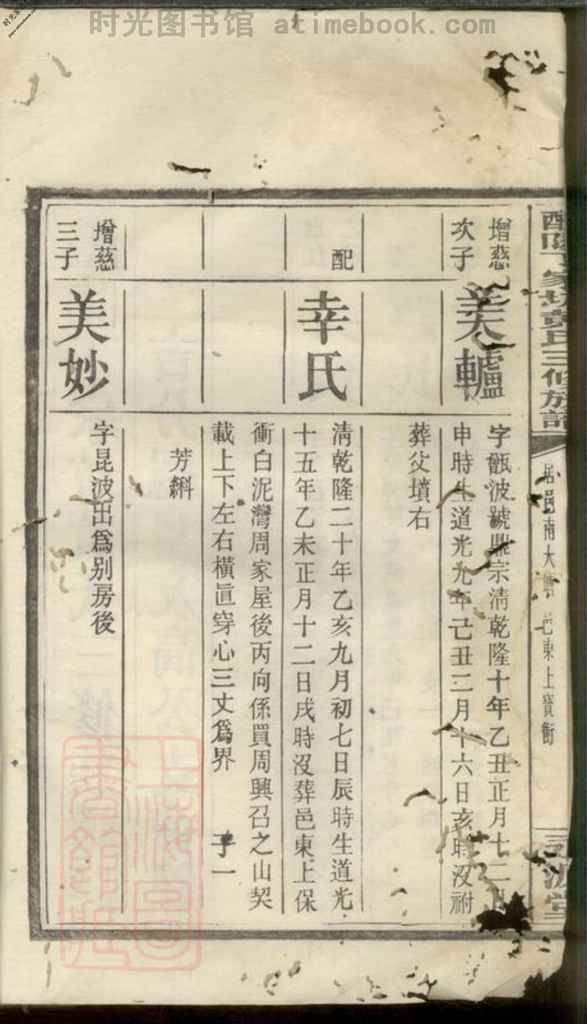 时光图书馆 atimebook.com
增慈
次子
美轤
字甑波號鼎宗清乾隆十年乙丑正月十二日
申時生道光九年己丑二月十六日亥時沒祔
葬父墳右
配
幸氏
清乾隆二十年乙亥九月初七日辰時生道光
十五年乙未正月十二日戌時沒葬邑東上保
衝白泥灣周家屋後丙向係買周興召之山契
載上下左右橫直穿心三丈爲界 子一
芳㪺
增慈
三子
美妙
字昆波出爲別房後
居邑南大 邑東上寶衝